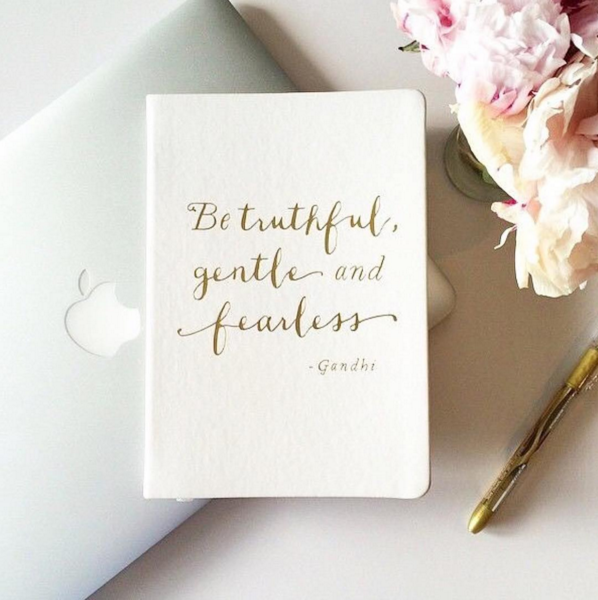 Be truthful,
gentle and
fearless
- Gandhi